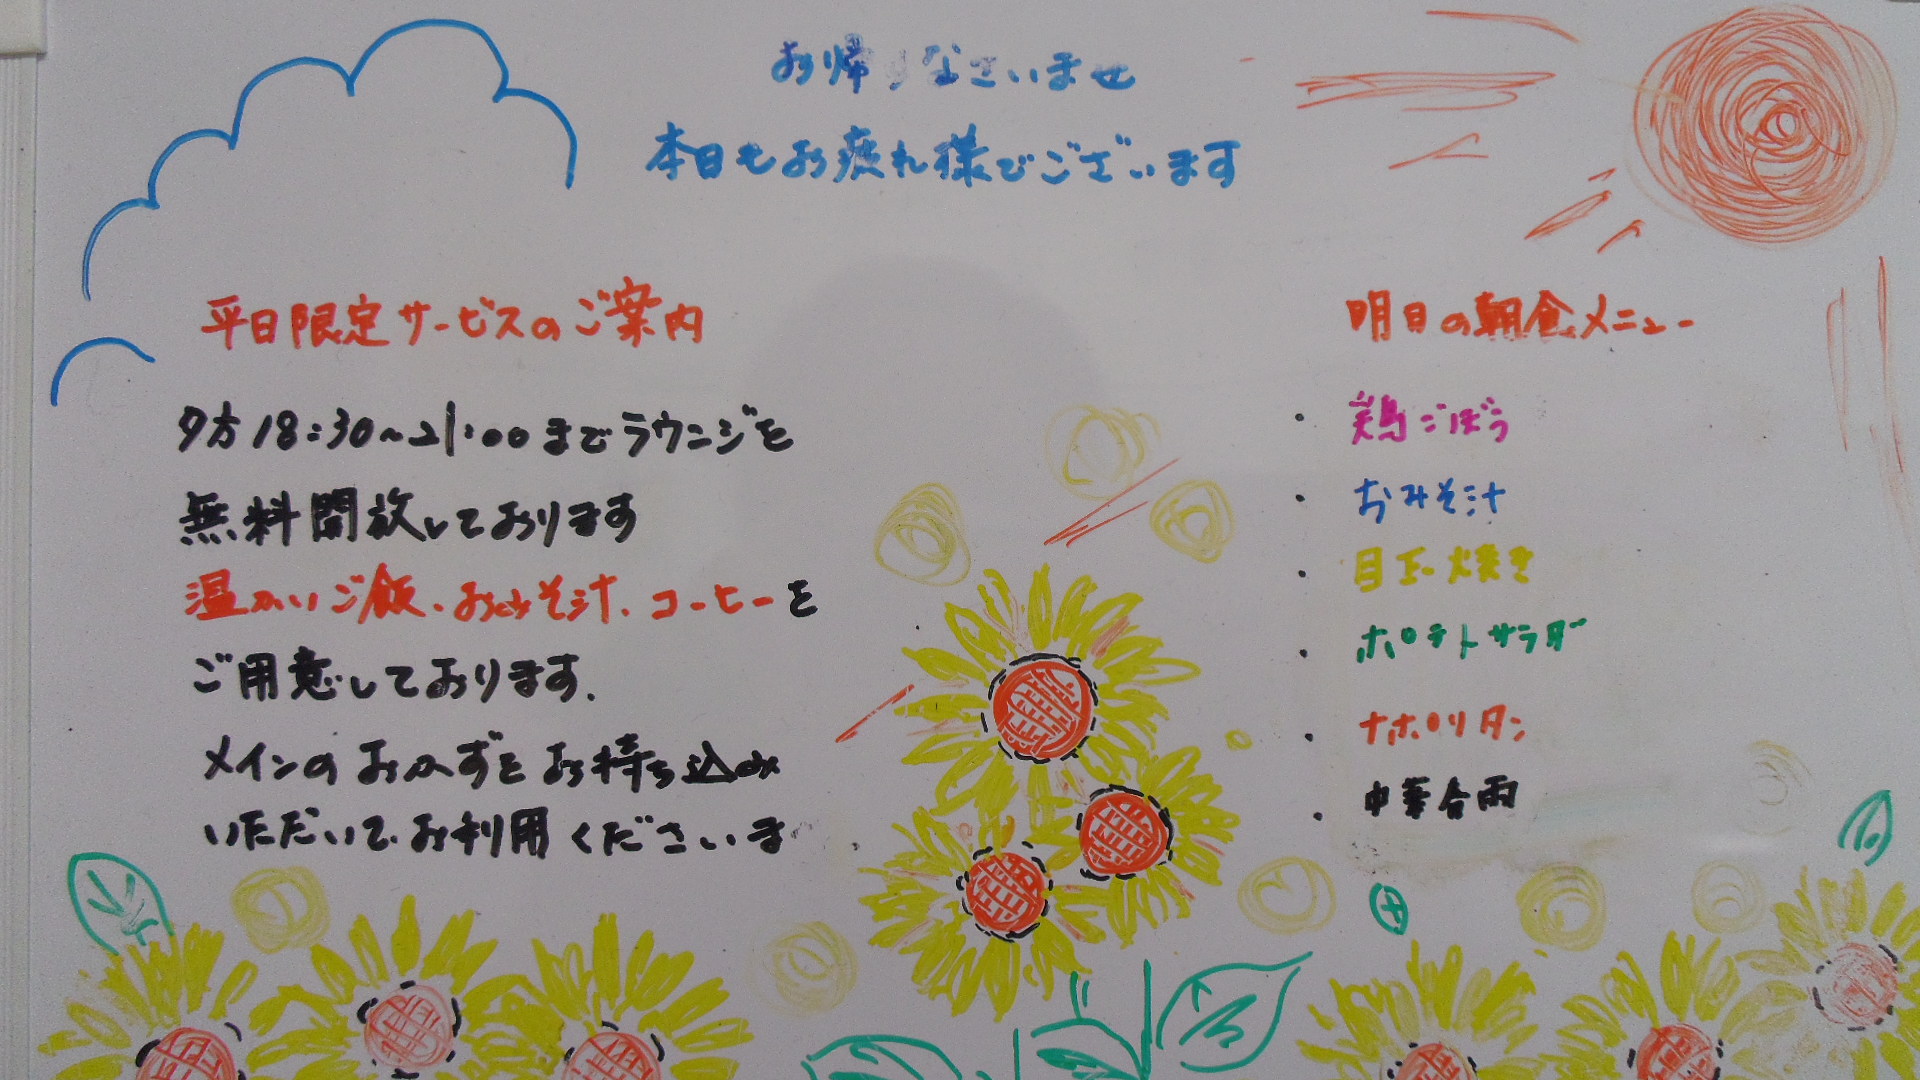 お帰りなさいませ
本日もお疲れ様でございます
平日限定サービスのご案内
夕方18:30~21:00までラウンジを
無料開放しております
温かいご飯、おみそ汁、コーヒーを
ご用意しております.
メインのおかずをお持ち込み
いただいて、お利用くださいま
明日の朝食メニュー
・鶏ごぼう
・おみそ汁
・目玉焼き
・ポテトサラダ
・ナポリタン
・中華